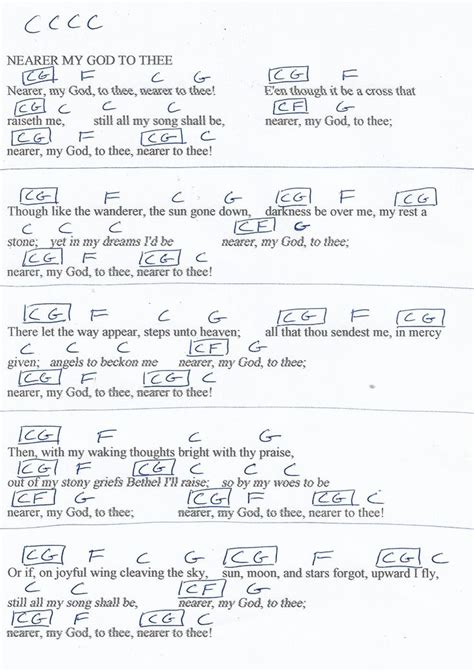 C C C C
NEARER MY GOD TO THEE
CG F C G CG F
Nearer, my God, to thee, nearer to thee! E'en though it be a cross that
CG C C C CF G
raiseth me, still all my song shall be, nearer, my God, to thee;
CG F CG C
nearer, my God, to thee, nearer to thee!
CG F C G CG F CG
Though like the wanderer, the sun gone down, darkness be over me, my rest a
C C C CF G
stone; yet in my dreams I'd be nearer, my God, to thee;
CG F CG C
nearer, my God, to thee, nearer to thee!
CG F C G CG F CG
There let the way appear, steps unto heaven; all that thou sendest me, in mercy
C C C CF G
given; angels to beckon me nearer, my God, to thee;
CG F CG C
nearer, my God, to thee, nearer to thee!
CG F C G
Then, with my waking thoughts bright with thy praise,
CG F CG C C C
out of my stony griefs Bethel I'll raise; so by my woes to be
CF G CG F CG C
nearer, my God, to thee; nearer, my God, to thee, nearer to thee!
CG F C G CG F CG C
Or if, on joyful wing cleaving the sky, sun, moon, and stars forgot, upward I fly,
C C CF G
still all my song shall be, nearer, my God, to thee;
CG F CG C
nearer, my God, to thee, nearer to thee!